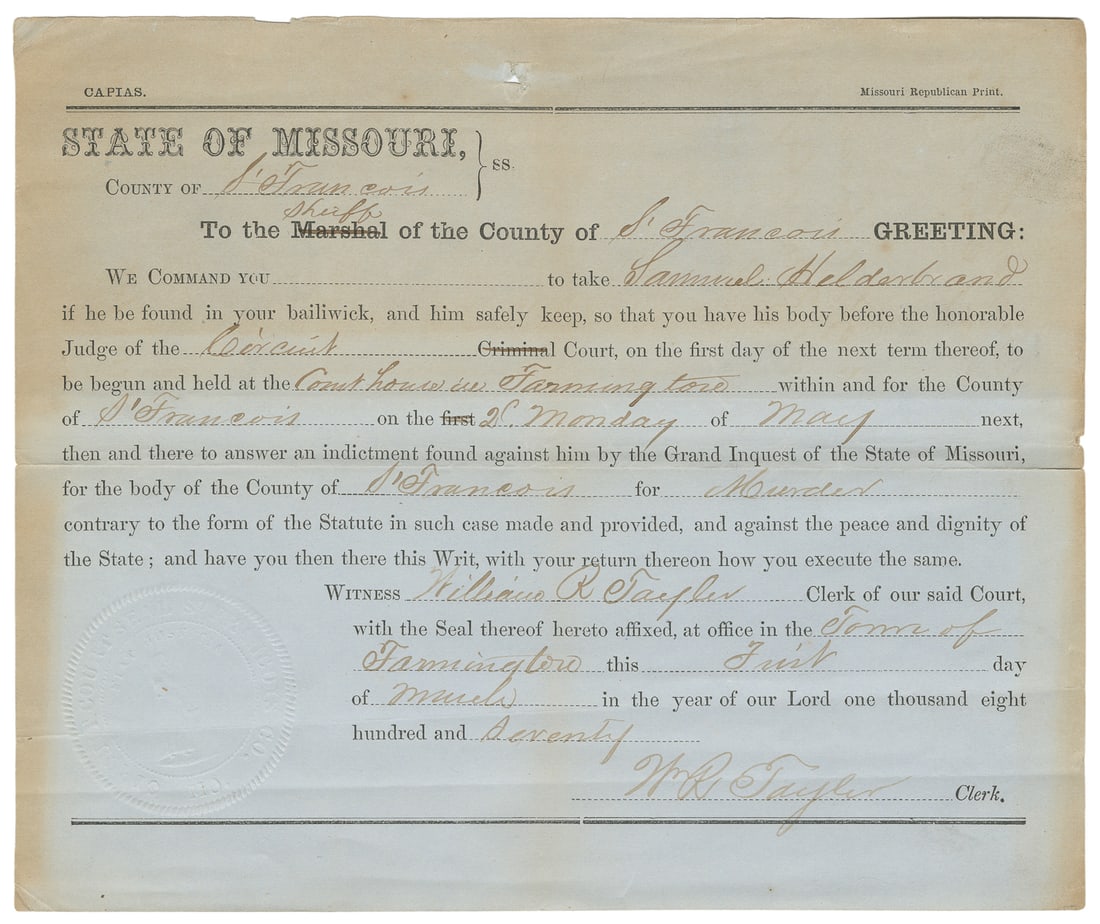 CAPIAS. Missouri Republican Print.
STATE OF MISSOURI, } SS.
COUNTY OF St Francois
Sheriff
To the Marshal of the County of St Francois GREETING:
WE COMMAND YOU to take Samuel Helderbrand
if he be found in your bailiwick, and him safely keep, so that you have his body before the honorable
Judge of the Circuit Criminal Court, on the first day of the next term thereof, to
be begun and held at the Court house in Farmington within and for the County
of St Francois on the first 2d Monday of May next,
then and there to answer an indictment found against him by the Grand Inquest of the State of Missouri,
for the body of the County of St Francois for Murder
contrary to the form of the Statute in such case made and provided, and against the peace and dignity of
the State; and have you then there this Writ, with your return thereon how you execute the same.
WITNESS William R Taylor Clerk of our said Court,
with the Seal thereof hereto affixed, at office in the Town of
Farmington this First day
of March in the year of our Lord one thousand eight
hundred and Seventy
Wm R Taylor Clerk.